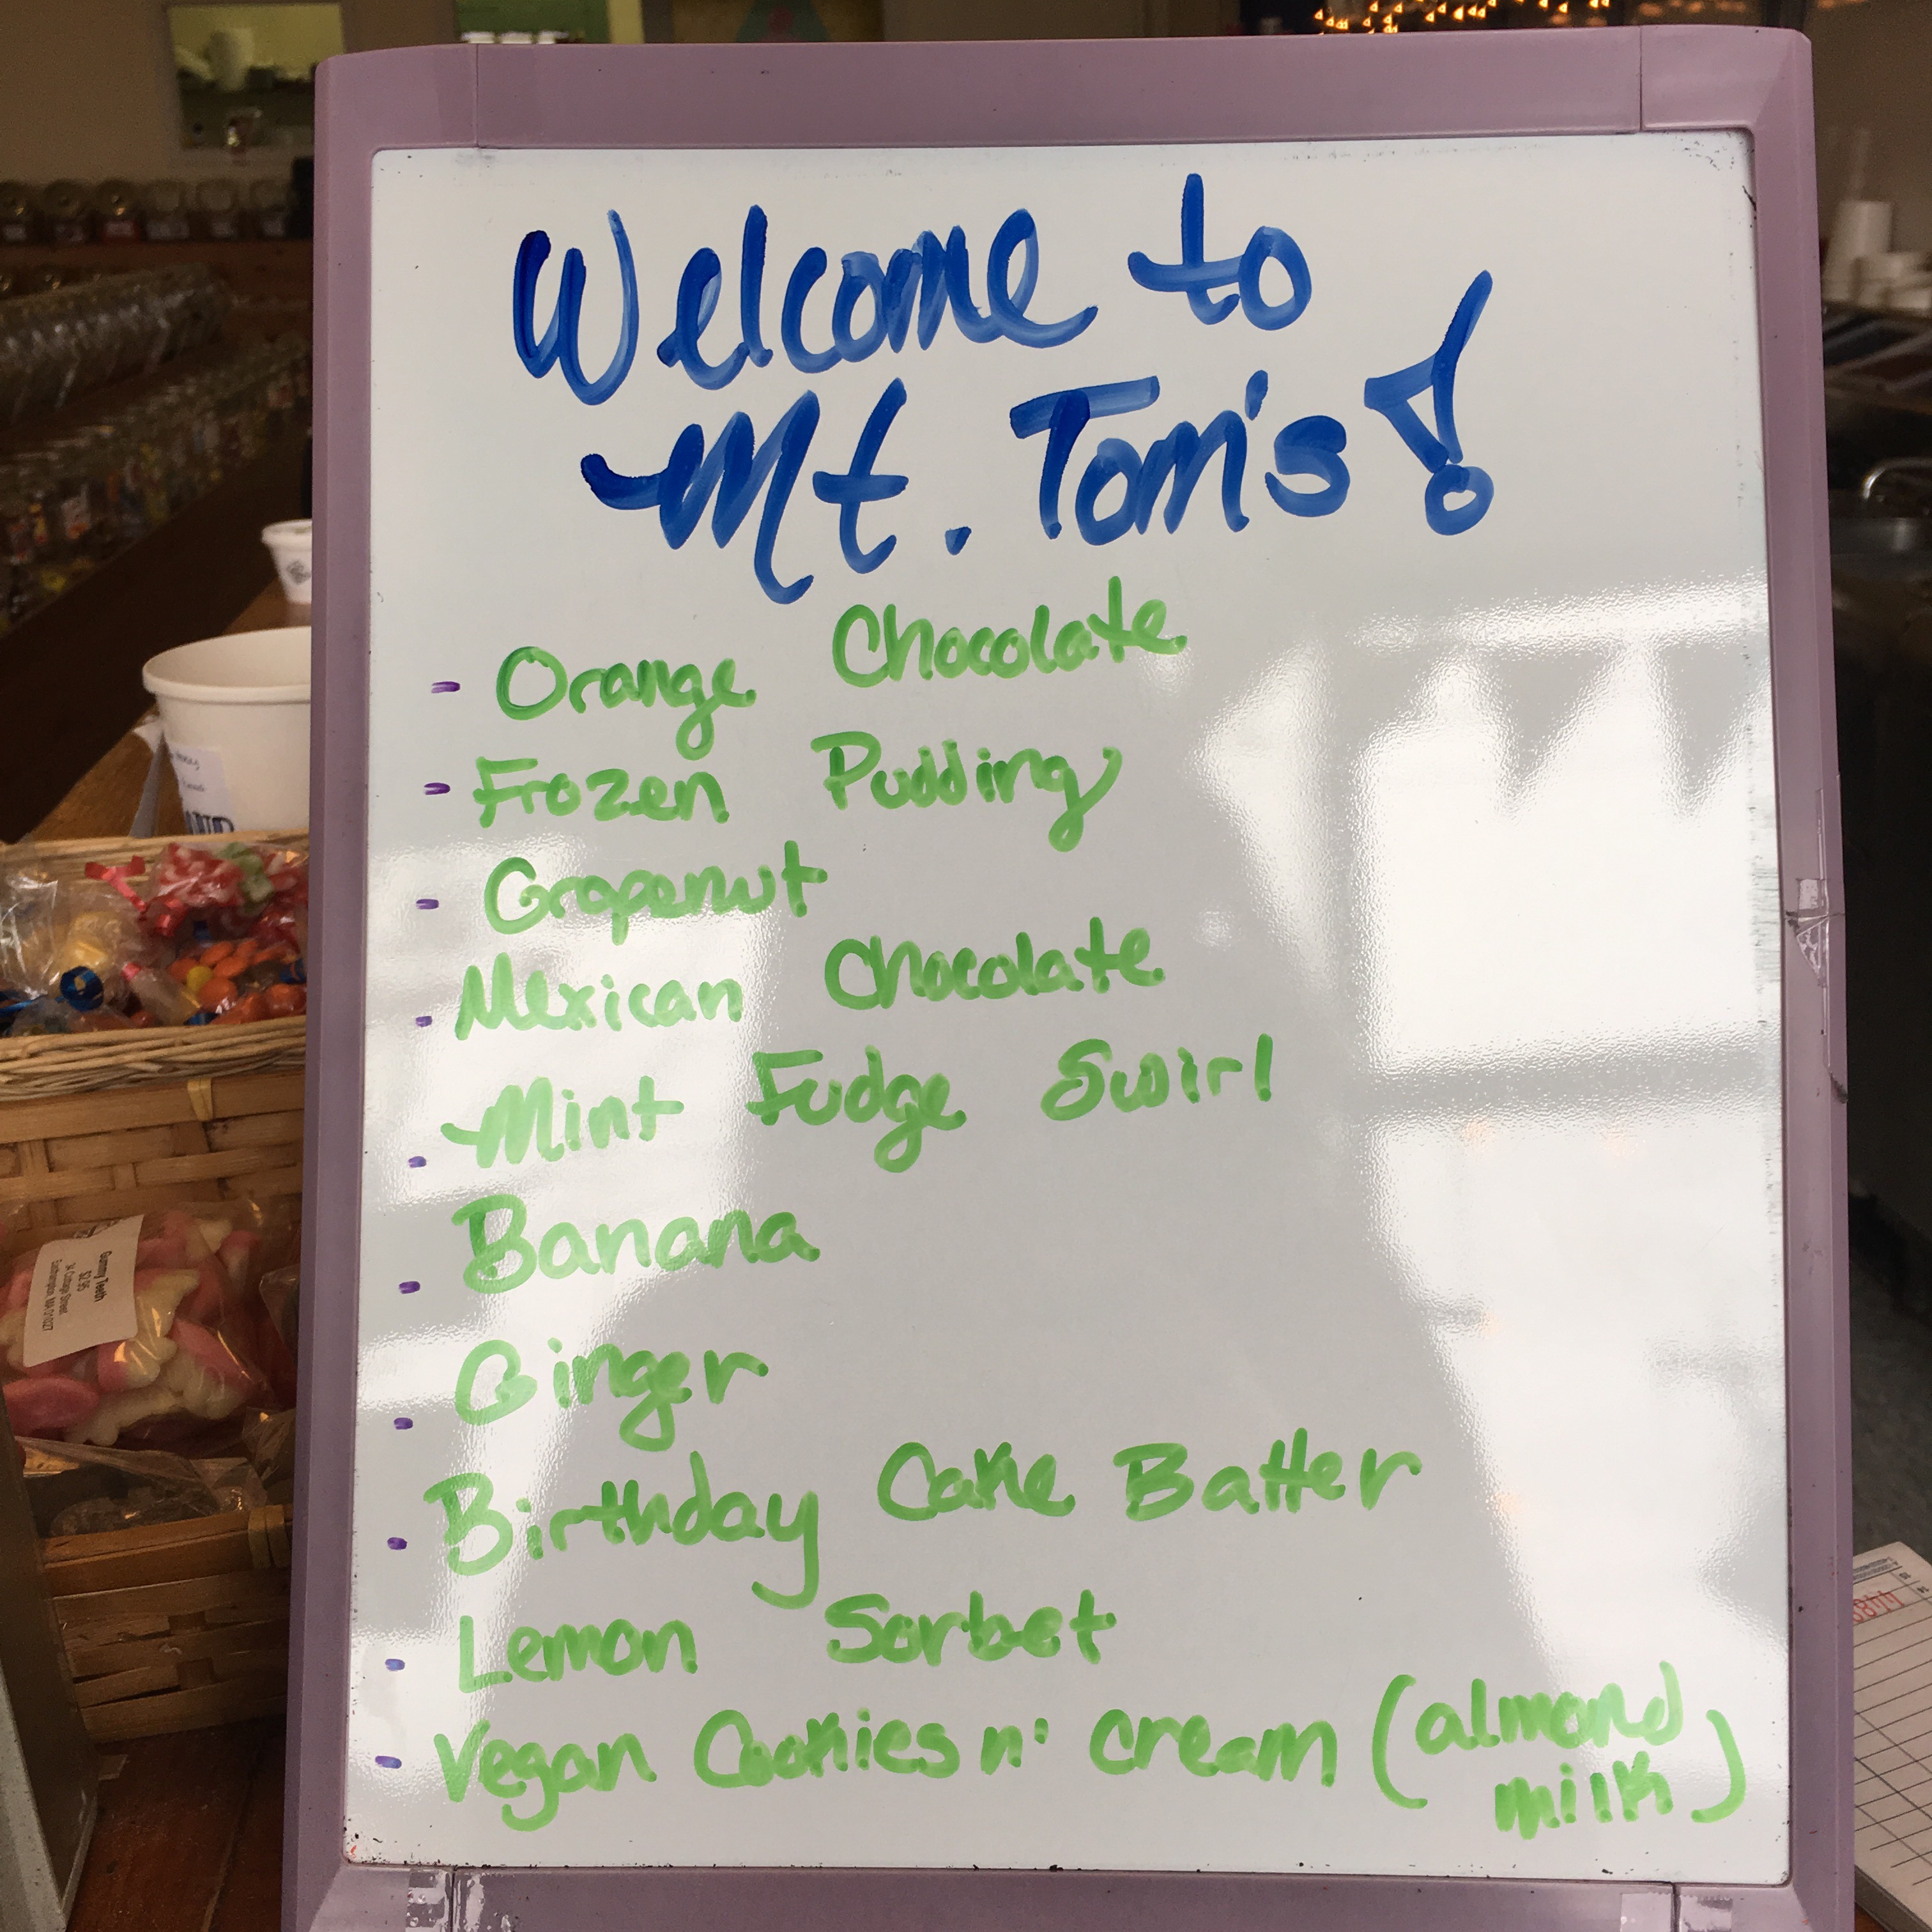 Welcome to
Mt. Tom's!
- Orange Chocolate
- Frozen Pudding
- Grapenut
- Mexican Chocolate
- Mint Fudge Swirl
- Banana
- Ginger
- Birthday Cake Batter
- Lemon Sorbet
- Vegan Cookies n' cream (almond
milk)
Gummy Teeth
$2.95
34 Cottage Street
Easthampton, MA 01027